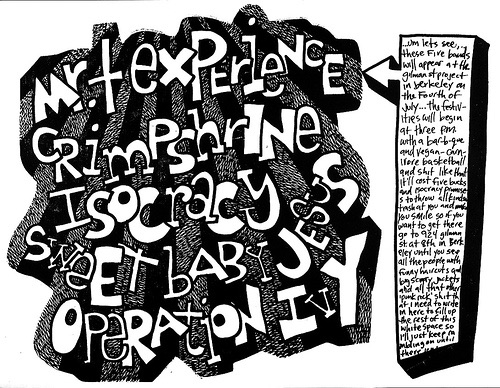 Mr. t experience
crimpshrine
Isocracy
Sweet baby Jesus
Operation Ivy
...um lets see,...
these five bands
will appear at the
gilman st project
in berkeley on
the Fourth of
July...the festiv-
ities will begin
at three p.m.
with a bar-b-que
and vegan-carn-
ivore basketball
and shit like that
it'll cost five bucks
and isocracy promises
to throw all kinda
trash at you and make
you smile so if you
want to get there
go to 924 gilman
st at 8th in Berk
eley until you see
all the people with
funny haircuts and
big scary jackets
and all that other
'punk rock' shit th
at i need to write
in here to fill up
the rest of this
white space so
i'll just keep ra
mbling on until
there